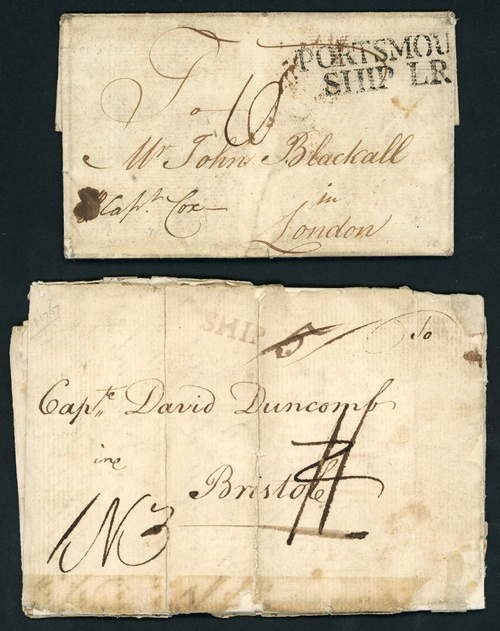 PORTSMOU
SHIP LR
To
6
Mr. John Blackall
p Capt. Cox
in
London
SHIP
To
Capte. David Duncomb
in
Bristol
1N3